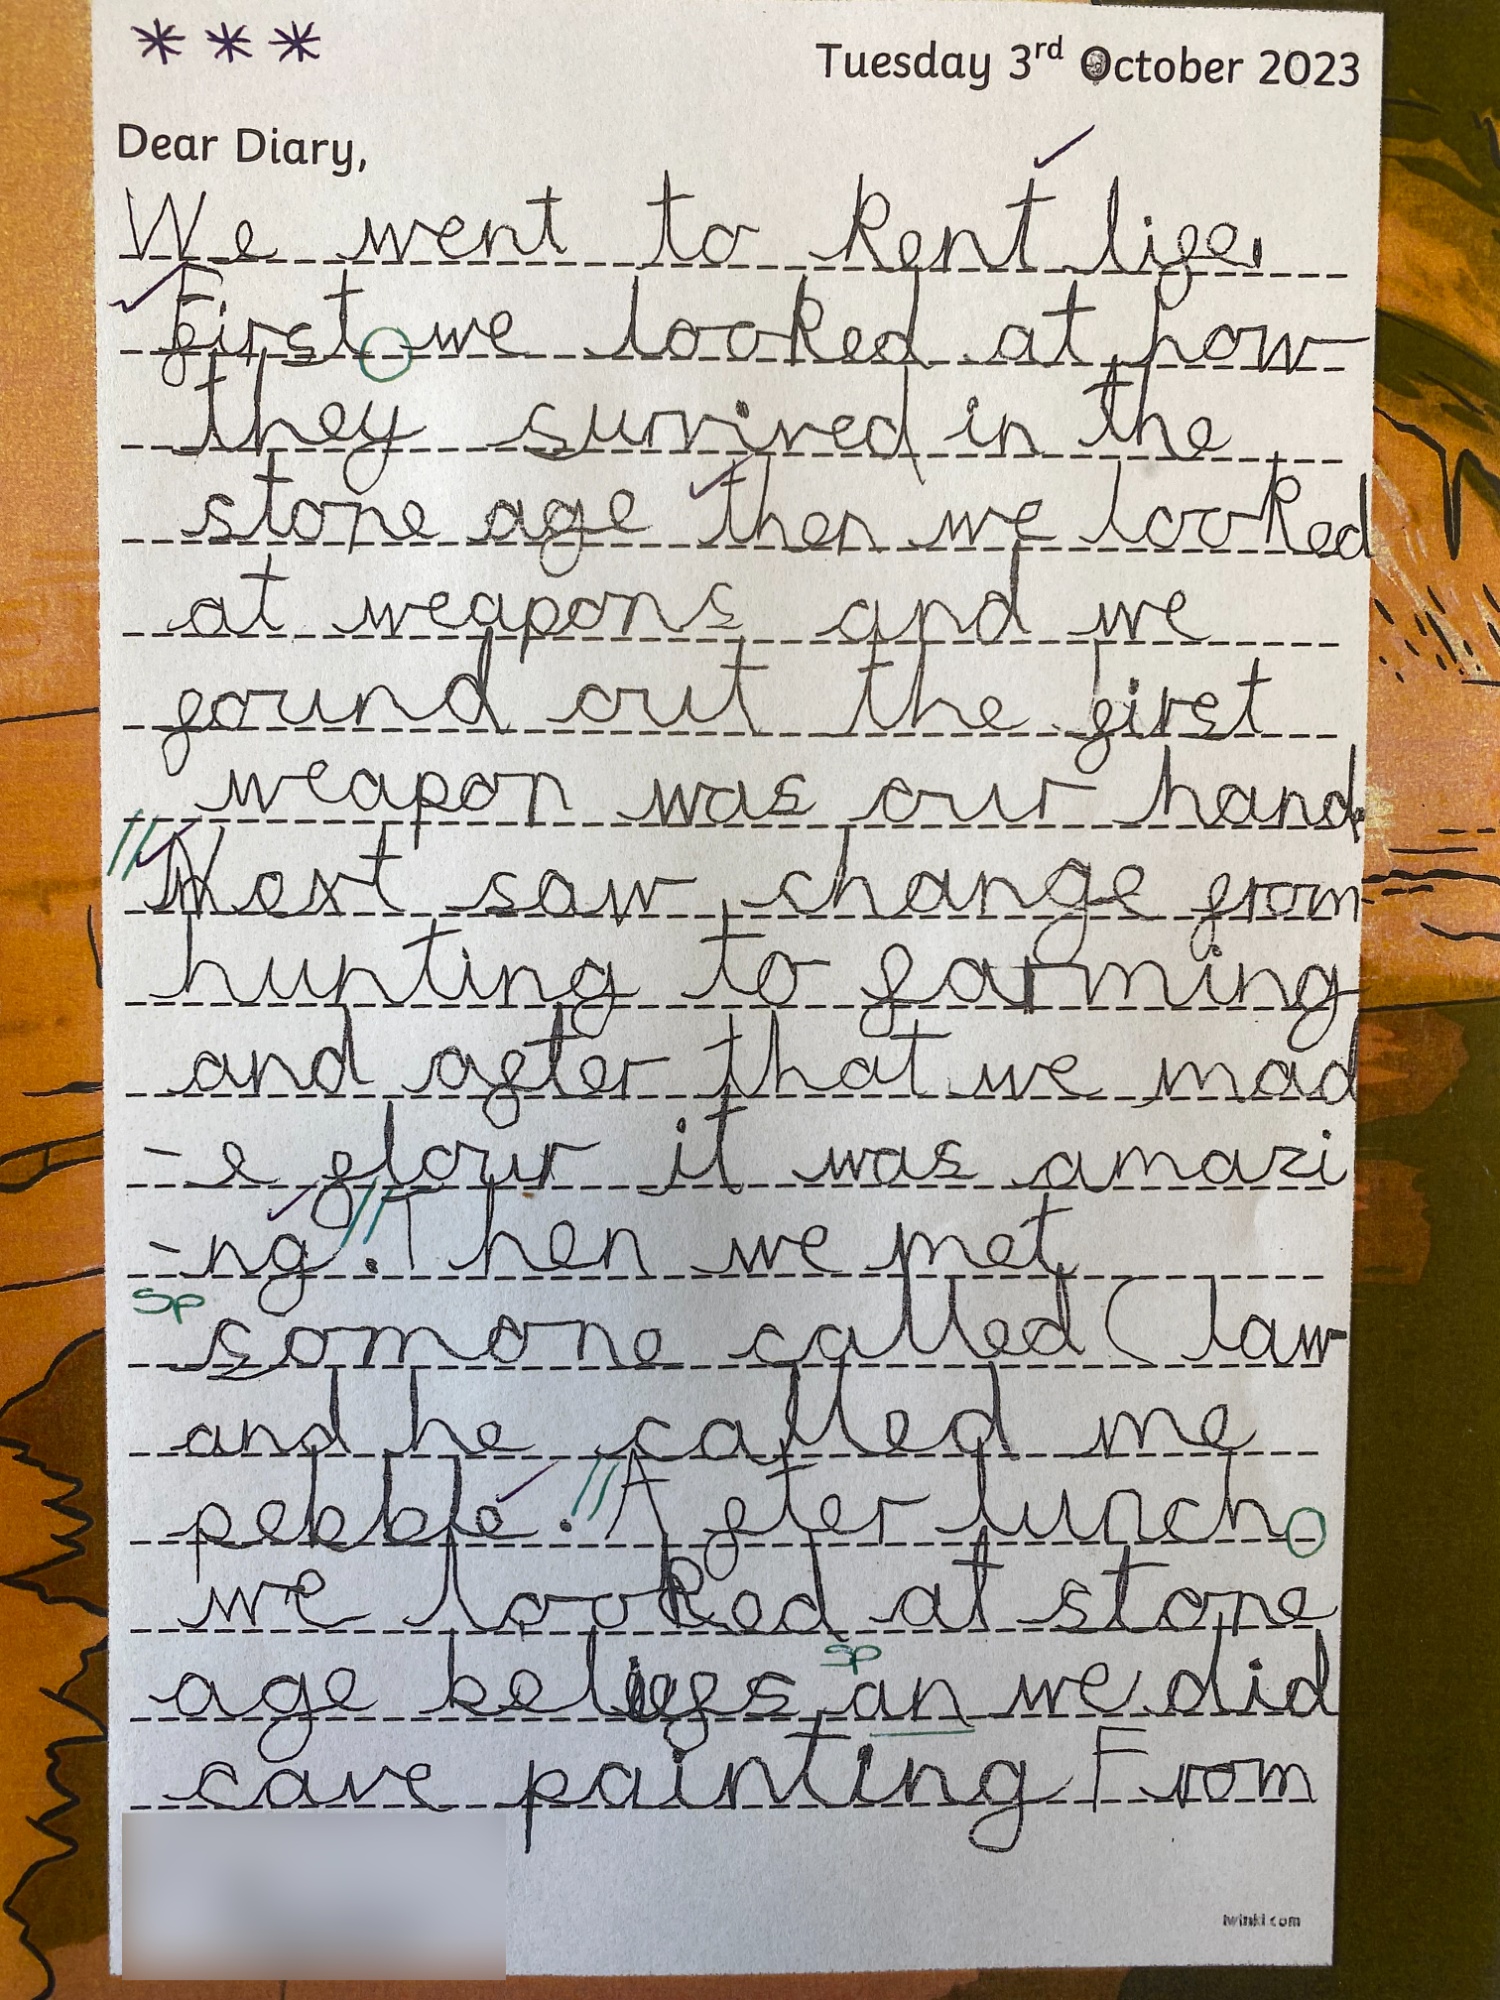 ***
Tuesday 3rd October 2023
Dear Diary,
We went to Kent life.
First we looked at how
they survived in the
stone age then we looked
at weapons and we
found out the first
weapon was our hand.
Next saw change from
hunting to farming
and after that we mad
-e flour it was amazi
-ng. Then we met
sp
somone called Claw
and he called me
pebble. After lunch
we looked at stone
sp
age beliefs an we did
cave painting From
twinkl.com